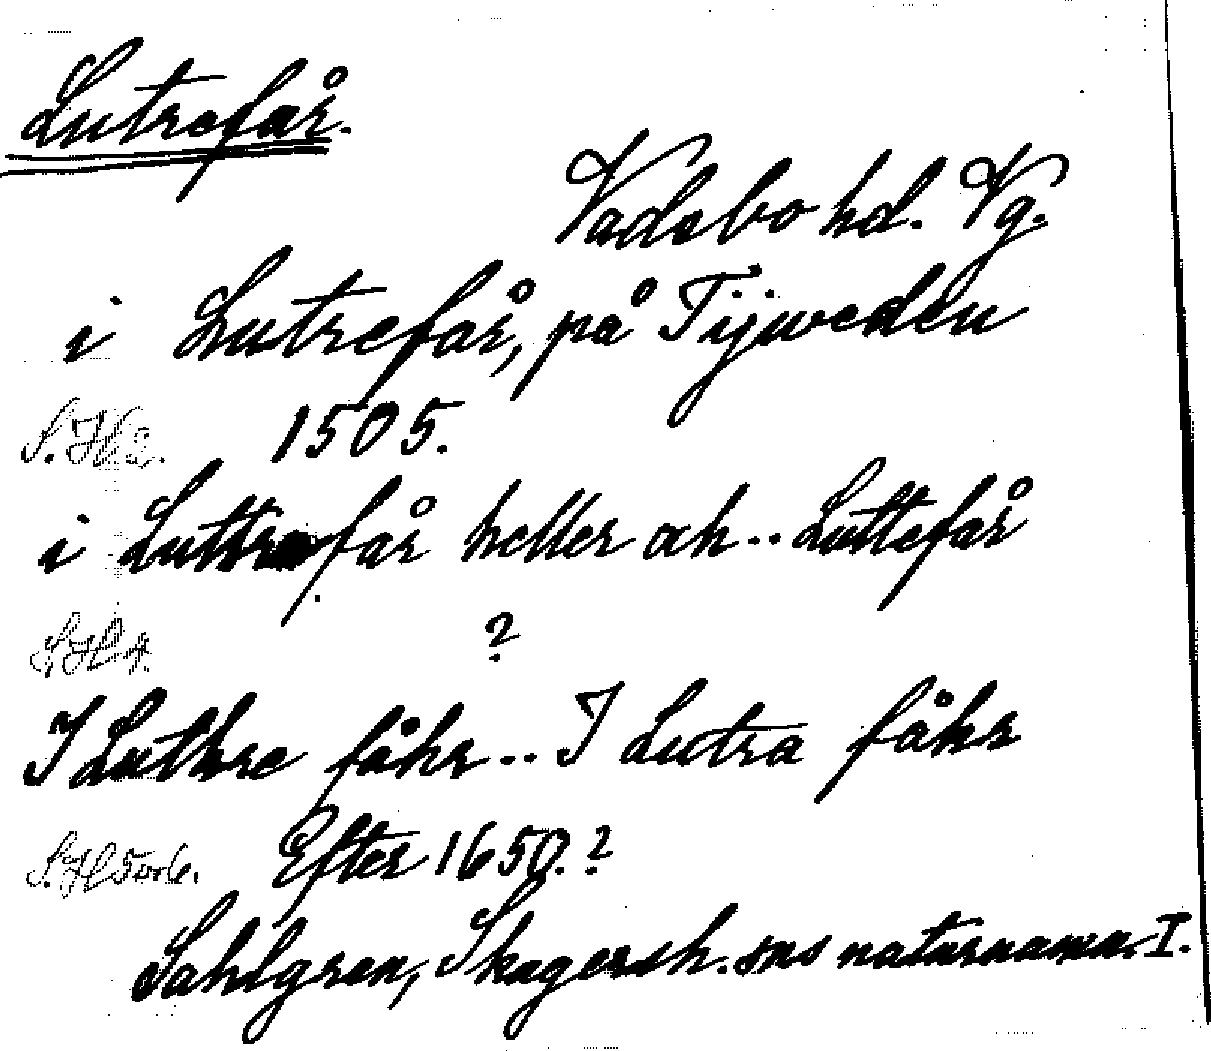 Lutrefår.
Vadsbo hd. Vg.
i Lutrefår, på Tijweden
S.H 2. 1505.
i Luttrafår heller och .. Luttefår
S.H 4. ?
I Luthre fåhr .. I Lutra fåhr
S.H 5 o 6. Efter 1650.?
Sahlgren, Skagersh. sns naturnamn. I.